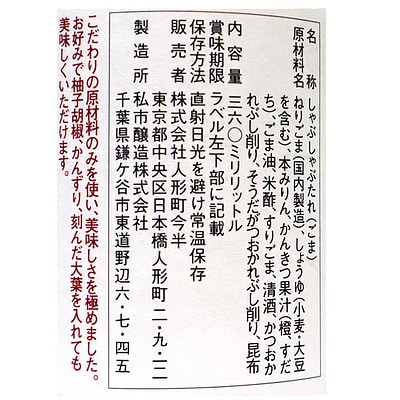 名　称　しゃぶしゃぶたれ(ごま)
原材料名　ねりごま(国内製造)、しょうゆ(小麦・大豆
を含む)、本みりん、かんきつ果汁(橙、すだ
ち)、ごま油、米酢、すりごま、清酒、かつおか
れぶし削り、そうだがつおかれぶし削り、昆布
内容量　三六〇ミリリットル
賞味期限　ラベル左下部に記載
保存方法　直射日光を避け常温保存
販売者　株式会社人形町今半
東京都中央区日本橋人形町二・九・一二
製造所　私市醸造株式会社
千葉県鎌ケ谷市東道野辺六・七・四五
こだわりの原材料のみを使い、美味しさを極めました。
お好みで柚子胡椒、かんずり、刻んだ大葉を入れても
美味しくいただけます。